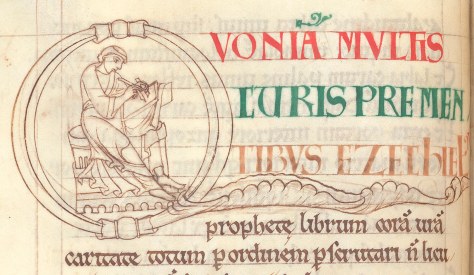 QVONIĀ MVLTIS
CURIS PREMEN
TIBVS EZECHIEL
prophetę librum corā urā
caritate totum ꝑ ordinem ꝑscrutari n̄ licu